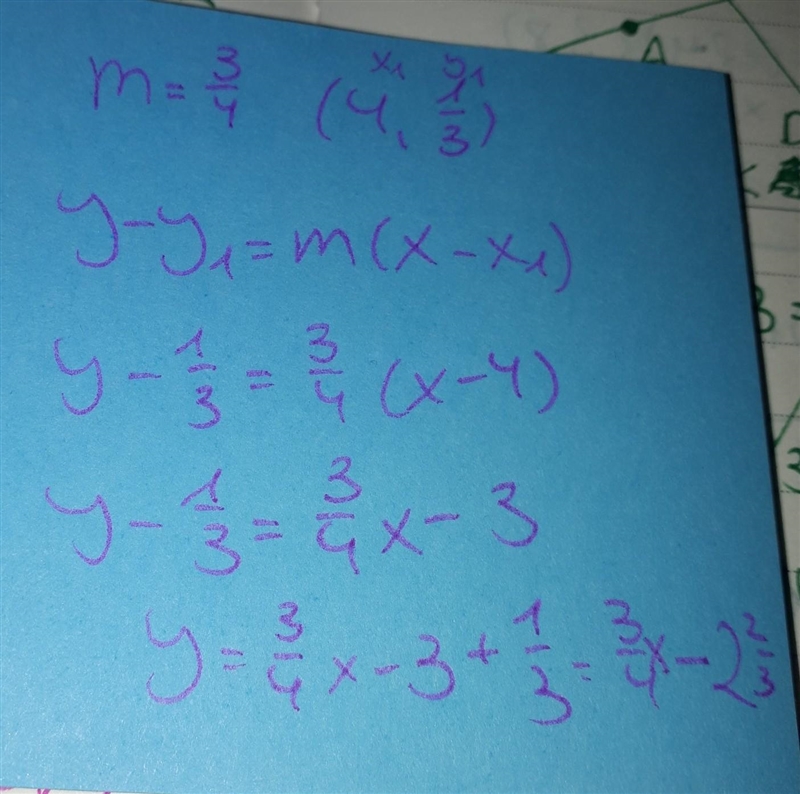 x₁ y₁
m = 3/4 (4, 1/3)
y - y₁ = m(x - x₁)
y - 1/3 = 3/4 (x - 4)
y - 1/3 = 3/4 x - 3
y = 3/4 x - 3 + 1/3 = 3/4 x - 2 2/3
A